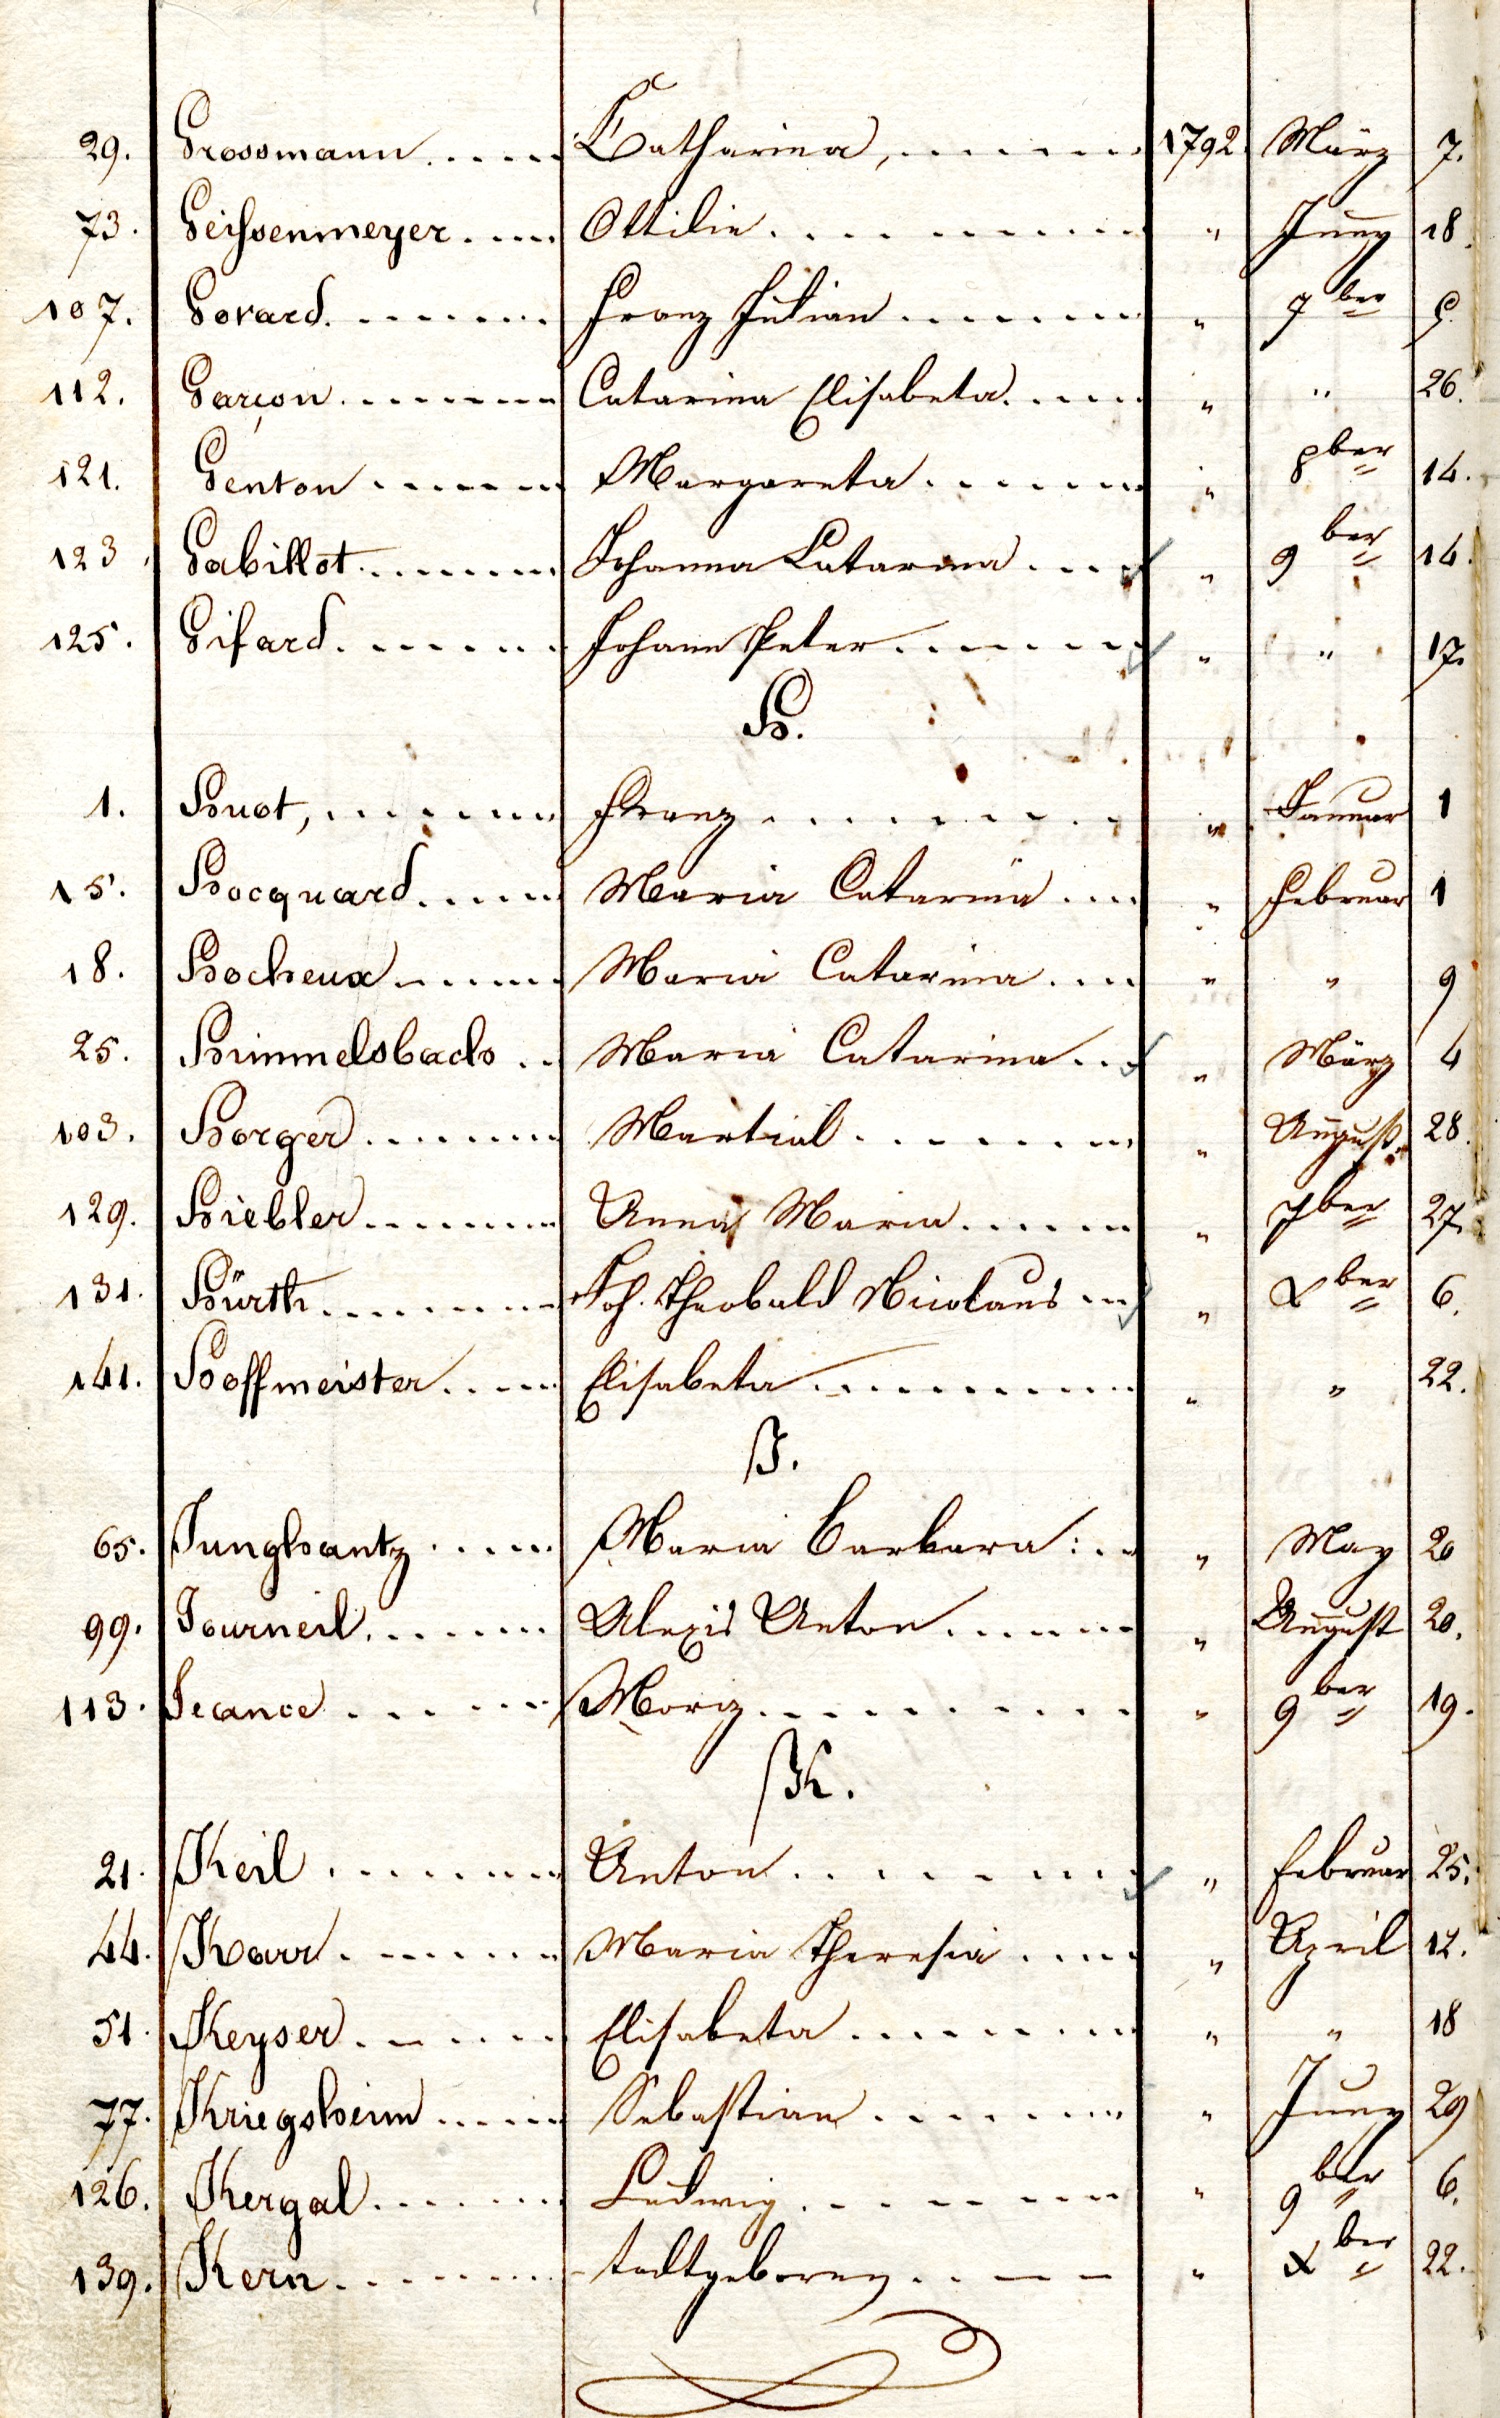 29. Grossmann..... Catharina,....... 1792. März 7.
73. Geissenmeyer..... Ottilie.......... " Juny 18.
107. Gorard........ Franz Julian....... " 7ber 9.
112. Garçon........ Catarina Elisabeta..... " " 26.
121. Genton....... Margareta....... " 8ber 14.
123. Gabillot....... Johanna Catarina.... " 9ber 14.
125. Gifard....... Johann Peter....... " " 17.
H.
1. Huot,....... Franz........ " Januar 1
15. Hocquard..... Maria Catarina.... " Februar 1
18. Hocheux...... Maria Catarina.... " " 9
25. Himmelsbach.. Maria Catarina... " März 4
103. Horger....... Martial....... " August 28.
129. Hiebler....... Anna Maria...... " 9ber 27.
131. Hürth....... Joh. Theobald Nicolaus... " Xber 6.
141. Hoffmeister..... Elisabeta.......... " " 22.
J.
65. Junghantz..... Maria Barbara:.. " May 20
99. Journeil...... Alexis Anton...... " August 20.
113. Jeance...... Moriz.......... " 9ber 19.
K.
21. Keil....... Anton........ " Februar 25.
44. Karr....... Maria Theresia..... " April 12.
51. Keyser...... Elisabeta........ " " 18
77. Kriegsheim..... Sebastian....... " Juny 29
126. Kergal....... Ludwig........ " 9ber 6.
139. Kern........ todtgeboren..... " Xber 22.